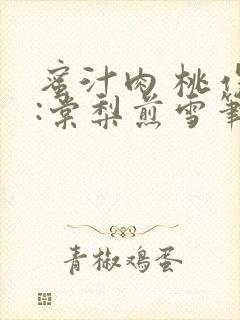 蜜汁肉桃
:棠梨煎雪
青椒鸡蛋